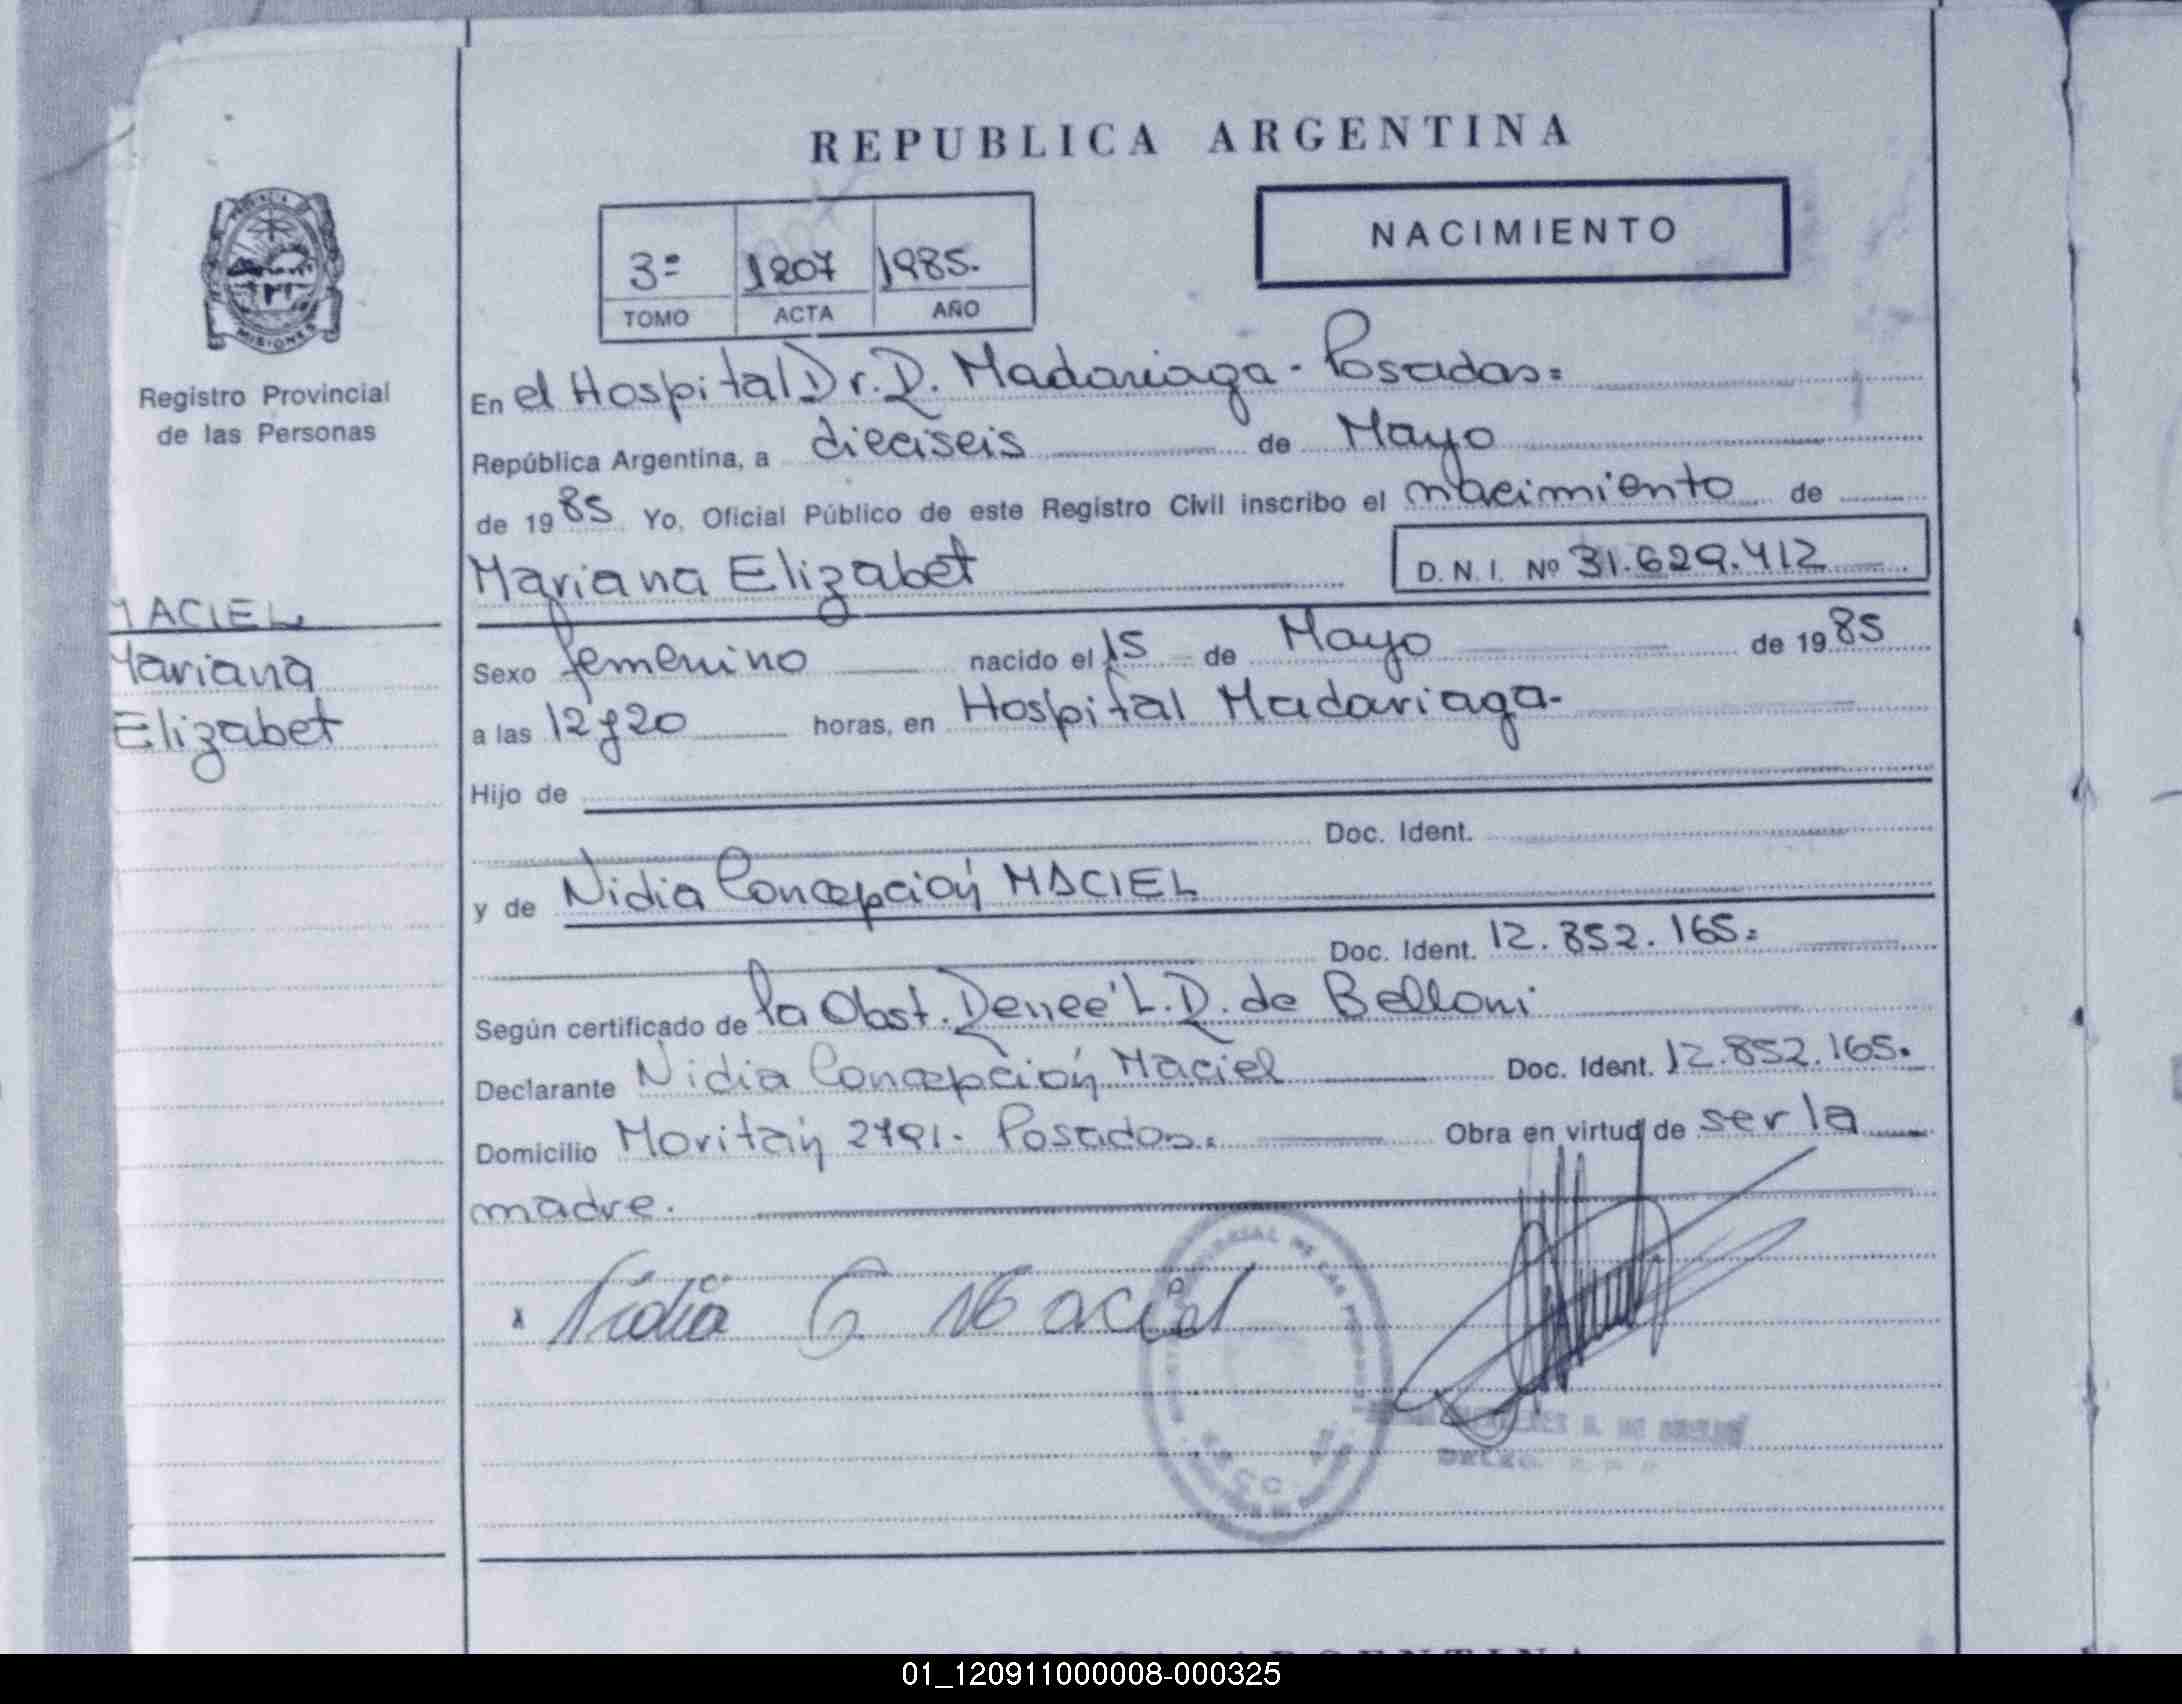 REPUBLICA ARGENTINA
NACIMIENTO
3º 1207 1985.
TOMO ACTA AÑO
MISIONES
Registro Provincial
de las Personas
En el Hospital Dr. R. Madariaga - Posadas=
República Argentina, a dieciseis de Mayo
de 1985 Yo, Oficial Público de este Registro Civil inscribo el nacimiento de
Mariana Elizabet D.N.I. Nº 31.629.412
MACIEL
Mariana
Elizabet
Sexo femenino nacido el 15 de Mayo de 1985
a las 12 y 20 horas, en Hospital Madariaga-
Hijo de
Doc. Ident.
y de Nidia Concepción MACIEL
Doc. Ident. 12.852.165=
Según certificado de la Obst. Renee L. R. de Belloni
Declarante Nidia Concepción Maciel Doc. Ident. 12.852.165.
Domicilio Posadas. Obra en virtud de ser la
madre.
Nidia C Maciel
01_120911000008-000325